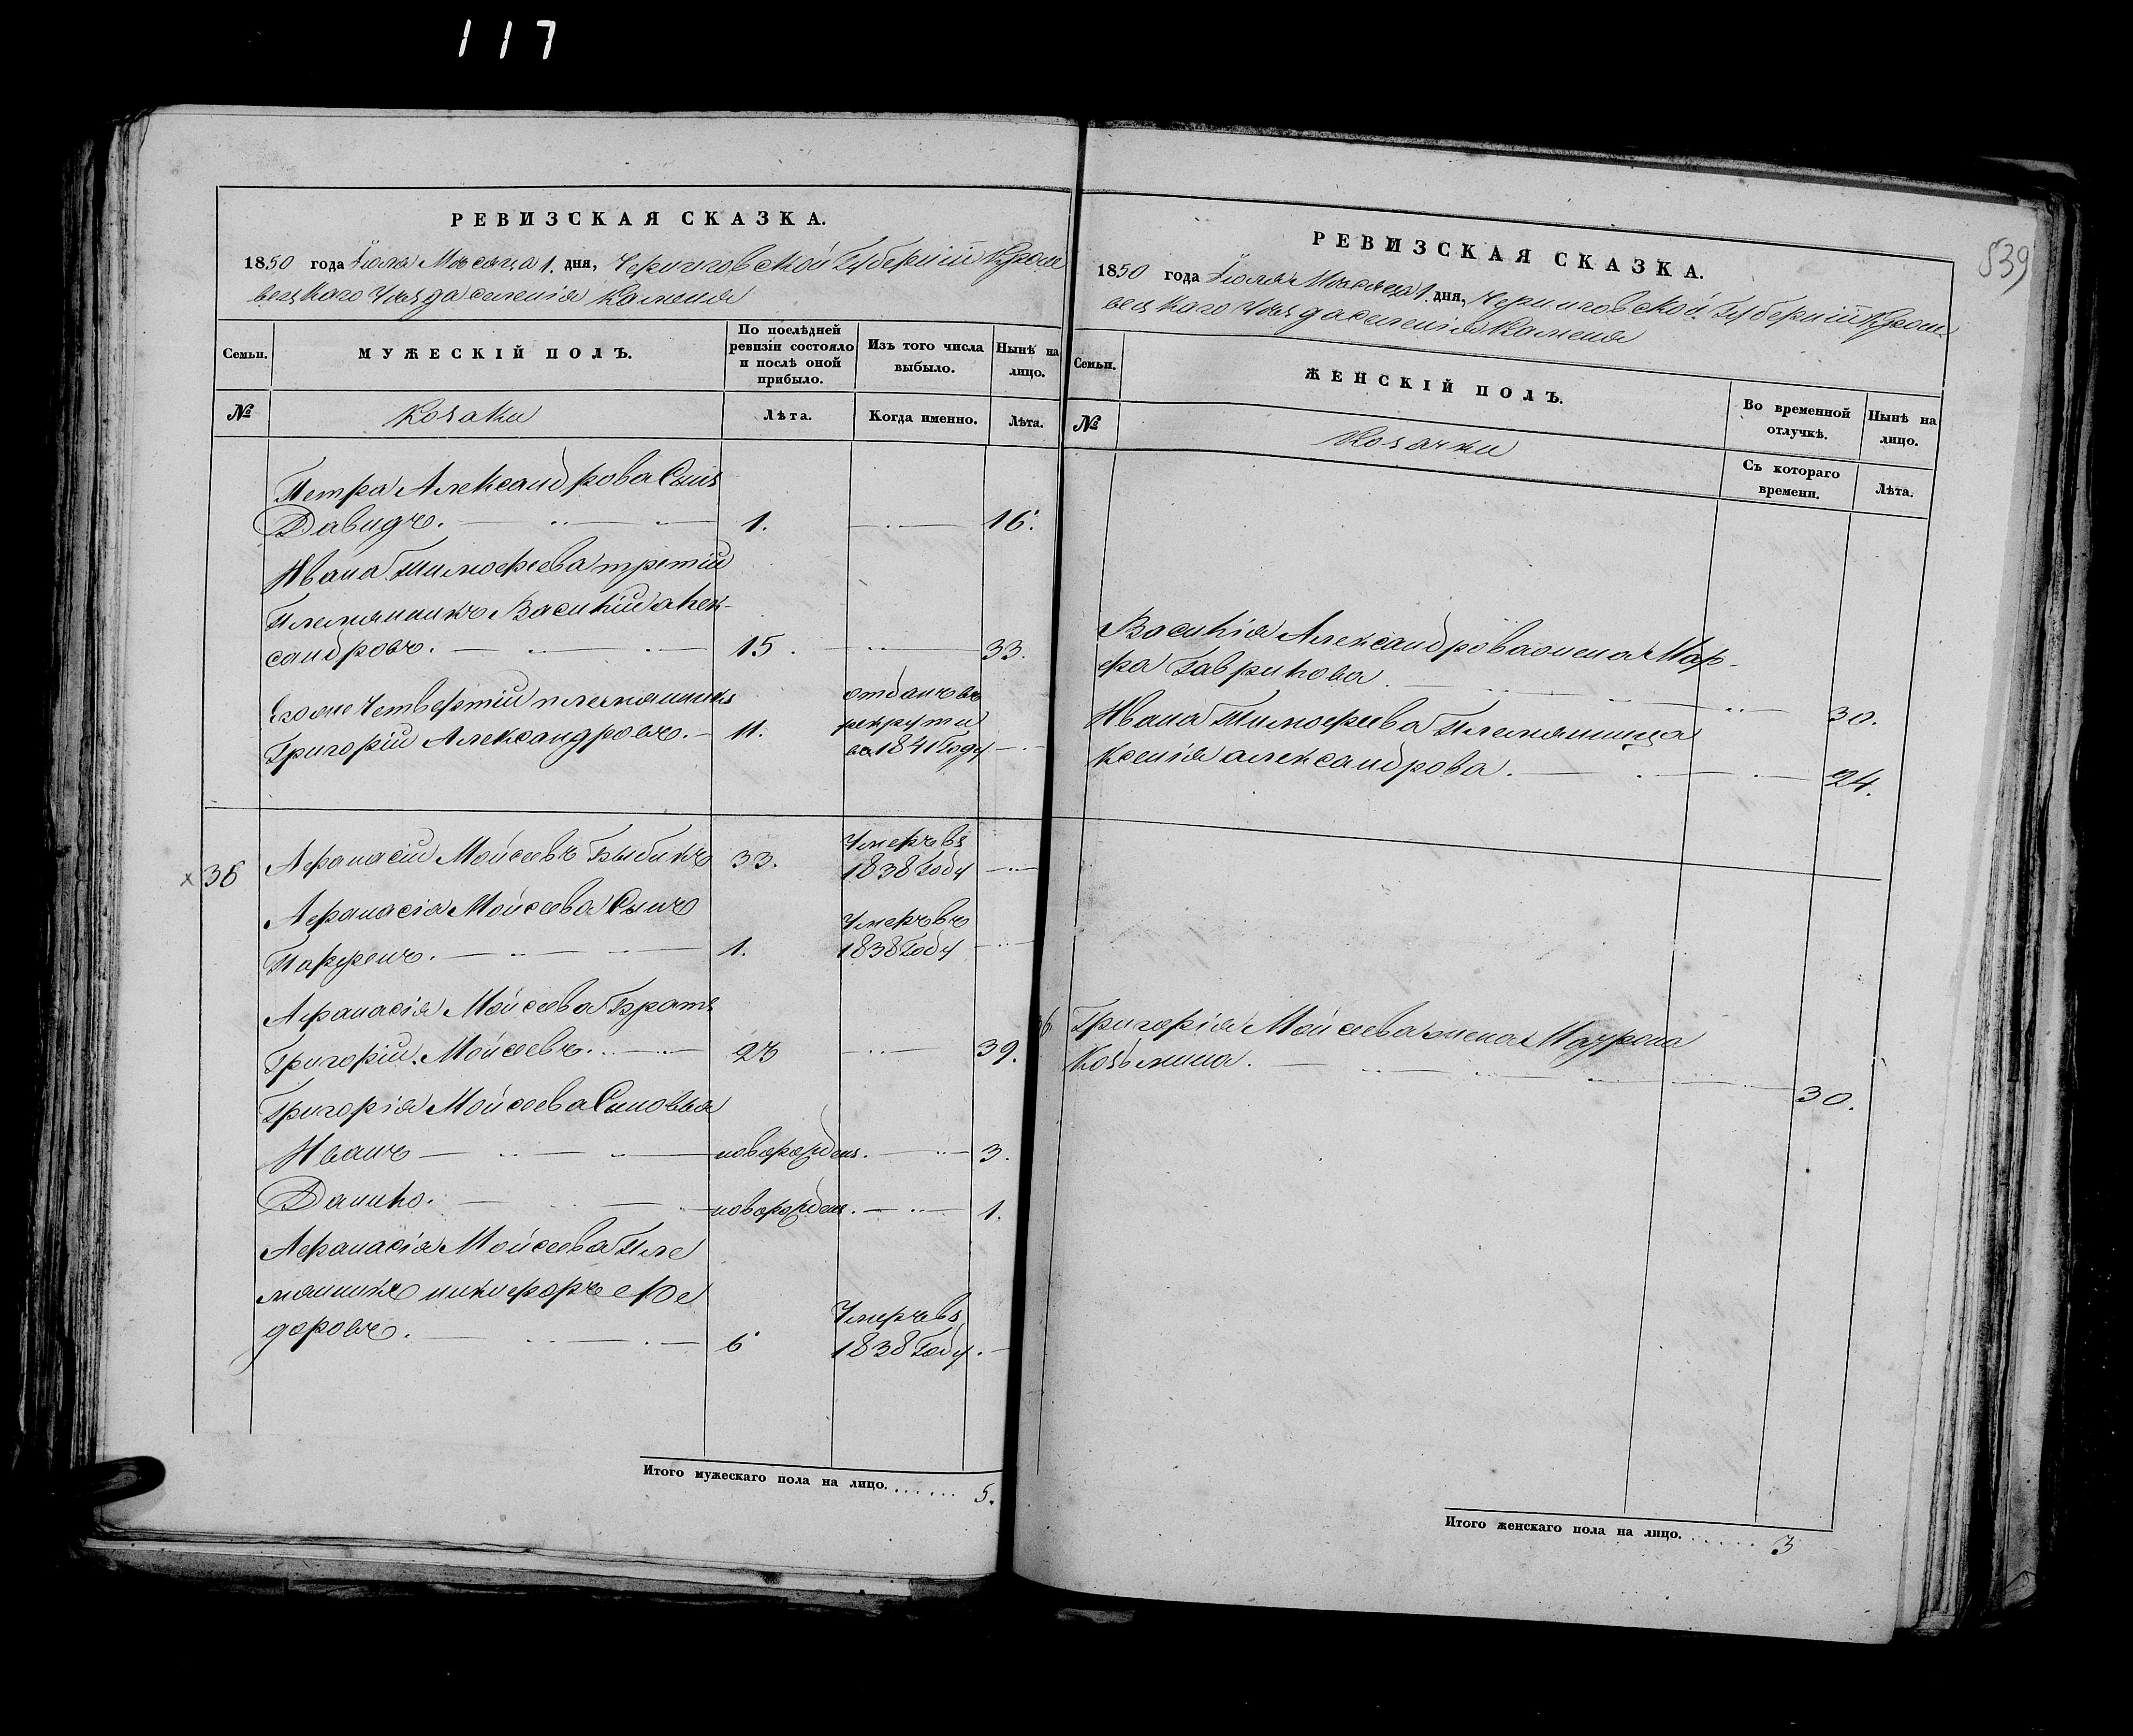 117
РЕВИЗСКАЯ СКАЗКА.
1850 года Іюля Мѣсяца 1. дня, Черниговской Губерніи Крол
вецкаго Уѣзда селенія Каменя
Семьи.
МУЖЕСКІЙ ПОЛЪ.
По послѣдней
ревизіи состояло
и послѣ оной
прибыло.
Изъ того числа
выбыло.
Нынѣ на
лицо.
№
Козаки
Лѣта.
Когда именно.
Лѣта.
Петра Александрова Сынъ
Давидъ. 1. 16.
Ивана Тимофеева третій
племянникъ Василій алек-
сандровъ. 15. 33.
Егоже Четвертій племянникъ отданъ въ
Григорій Александровъ. 11. рекруты
во 1841 Году
Умеръ въ
х 36 Афанасій Мойсеевъ 33. 1838 Году
Афанасія Мойсеева Сынъ Умеръ въ
Парфенъ. 1. 1838 Году
Афанасія Мойсеева Братъ
Григорій Мойсеевъ. 23 39.
Григорія Мойсеева Синовья
Иванъ новорожденъ. 3.
Данило. новорожденъ. 1.
Афанасія Мойсеева Пле
мянникъ никифоръ Фе Умеръ въ
доровъ. 6 1838 Году.
Итого мужескаго пола на лицо. . . . . . . 5.
539
РЕВИЗСКАЯ СКАЗКА.
1850 года Іюля Мѣсяца 1. дня, Черниговской Губерніи Крол
вецкаго Уѣзда селенія Каменя
Семьи.
ЖЕНСКІЙ ПОЛЪ.
Во временной
отлучкѣ.
Нынѣ на
лицо.
№
Козачки
Съ котораго
времени.
Лѣта.
Василія Александрова жена Мар-
фа Гаврилова 30.
Ивана Тимофеева Племянница
Ксенія александрова. 24.
36 Григорія Мойсеева жена
Козьмина. 30.
Итого женскаго пола на лицо. . . . . . . 3